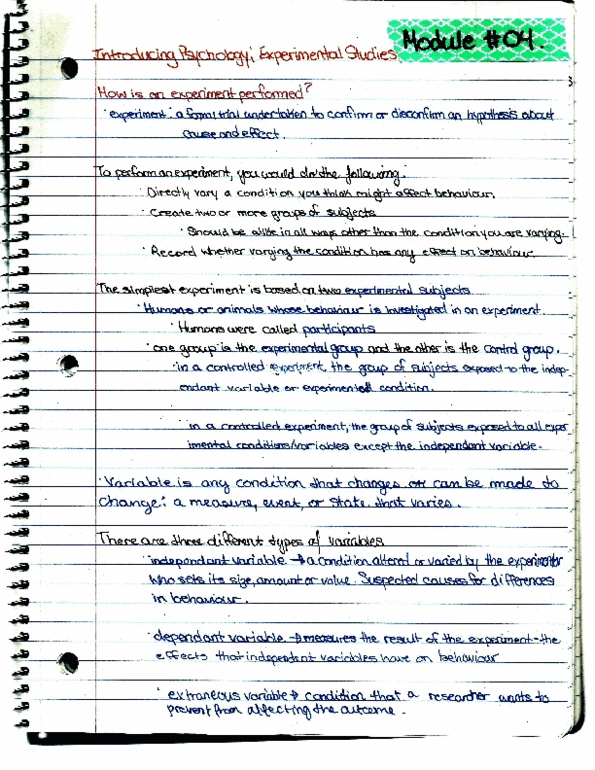 Module #04.
Introducing Psychology; Experimental Studies
How is an experiment performed?
· experiment: a formal trial undertaken to confirm or disconfirm an hypothesis about
cause and effect.
To perform an experiment, you would do the following:
· Directly vary a condition you think might affect behaviour.
· Create two or more groups of subjects
· Should be alike in all ways other than the condition you are varying.
· Record whether varying the condition has any effect on behaviour
The simplest experiment is based on two experimental subjects
· Humans or animals whose behaviour is investigated in an experiment.
· Humans were called participants
· one group is the experimental group and the other is the control group.
· in a controlled experiment, the group of subjects exposed to the indep-
endant variable or experimented condition.
· in a controlled experiment, the group of subjects exposed to all exper
imental conditions/variables except the independant variable.
· Variable is any condition that changes or can be made to
change: a measure, event, or state that varies.
There are three different types of variables
· independant variable → a condition altered or varied by the experimentor
who sets its size, amount or value. Suspected causes for differences
in behaviour.
· dependant variable → measures the result of the experiment - the
effects that independent variables have on behaviour
· extraneous variable → condition that a researcher wants to
prevent from affecting the outcome.